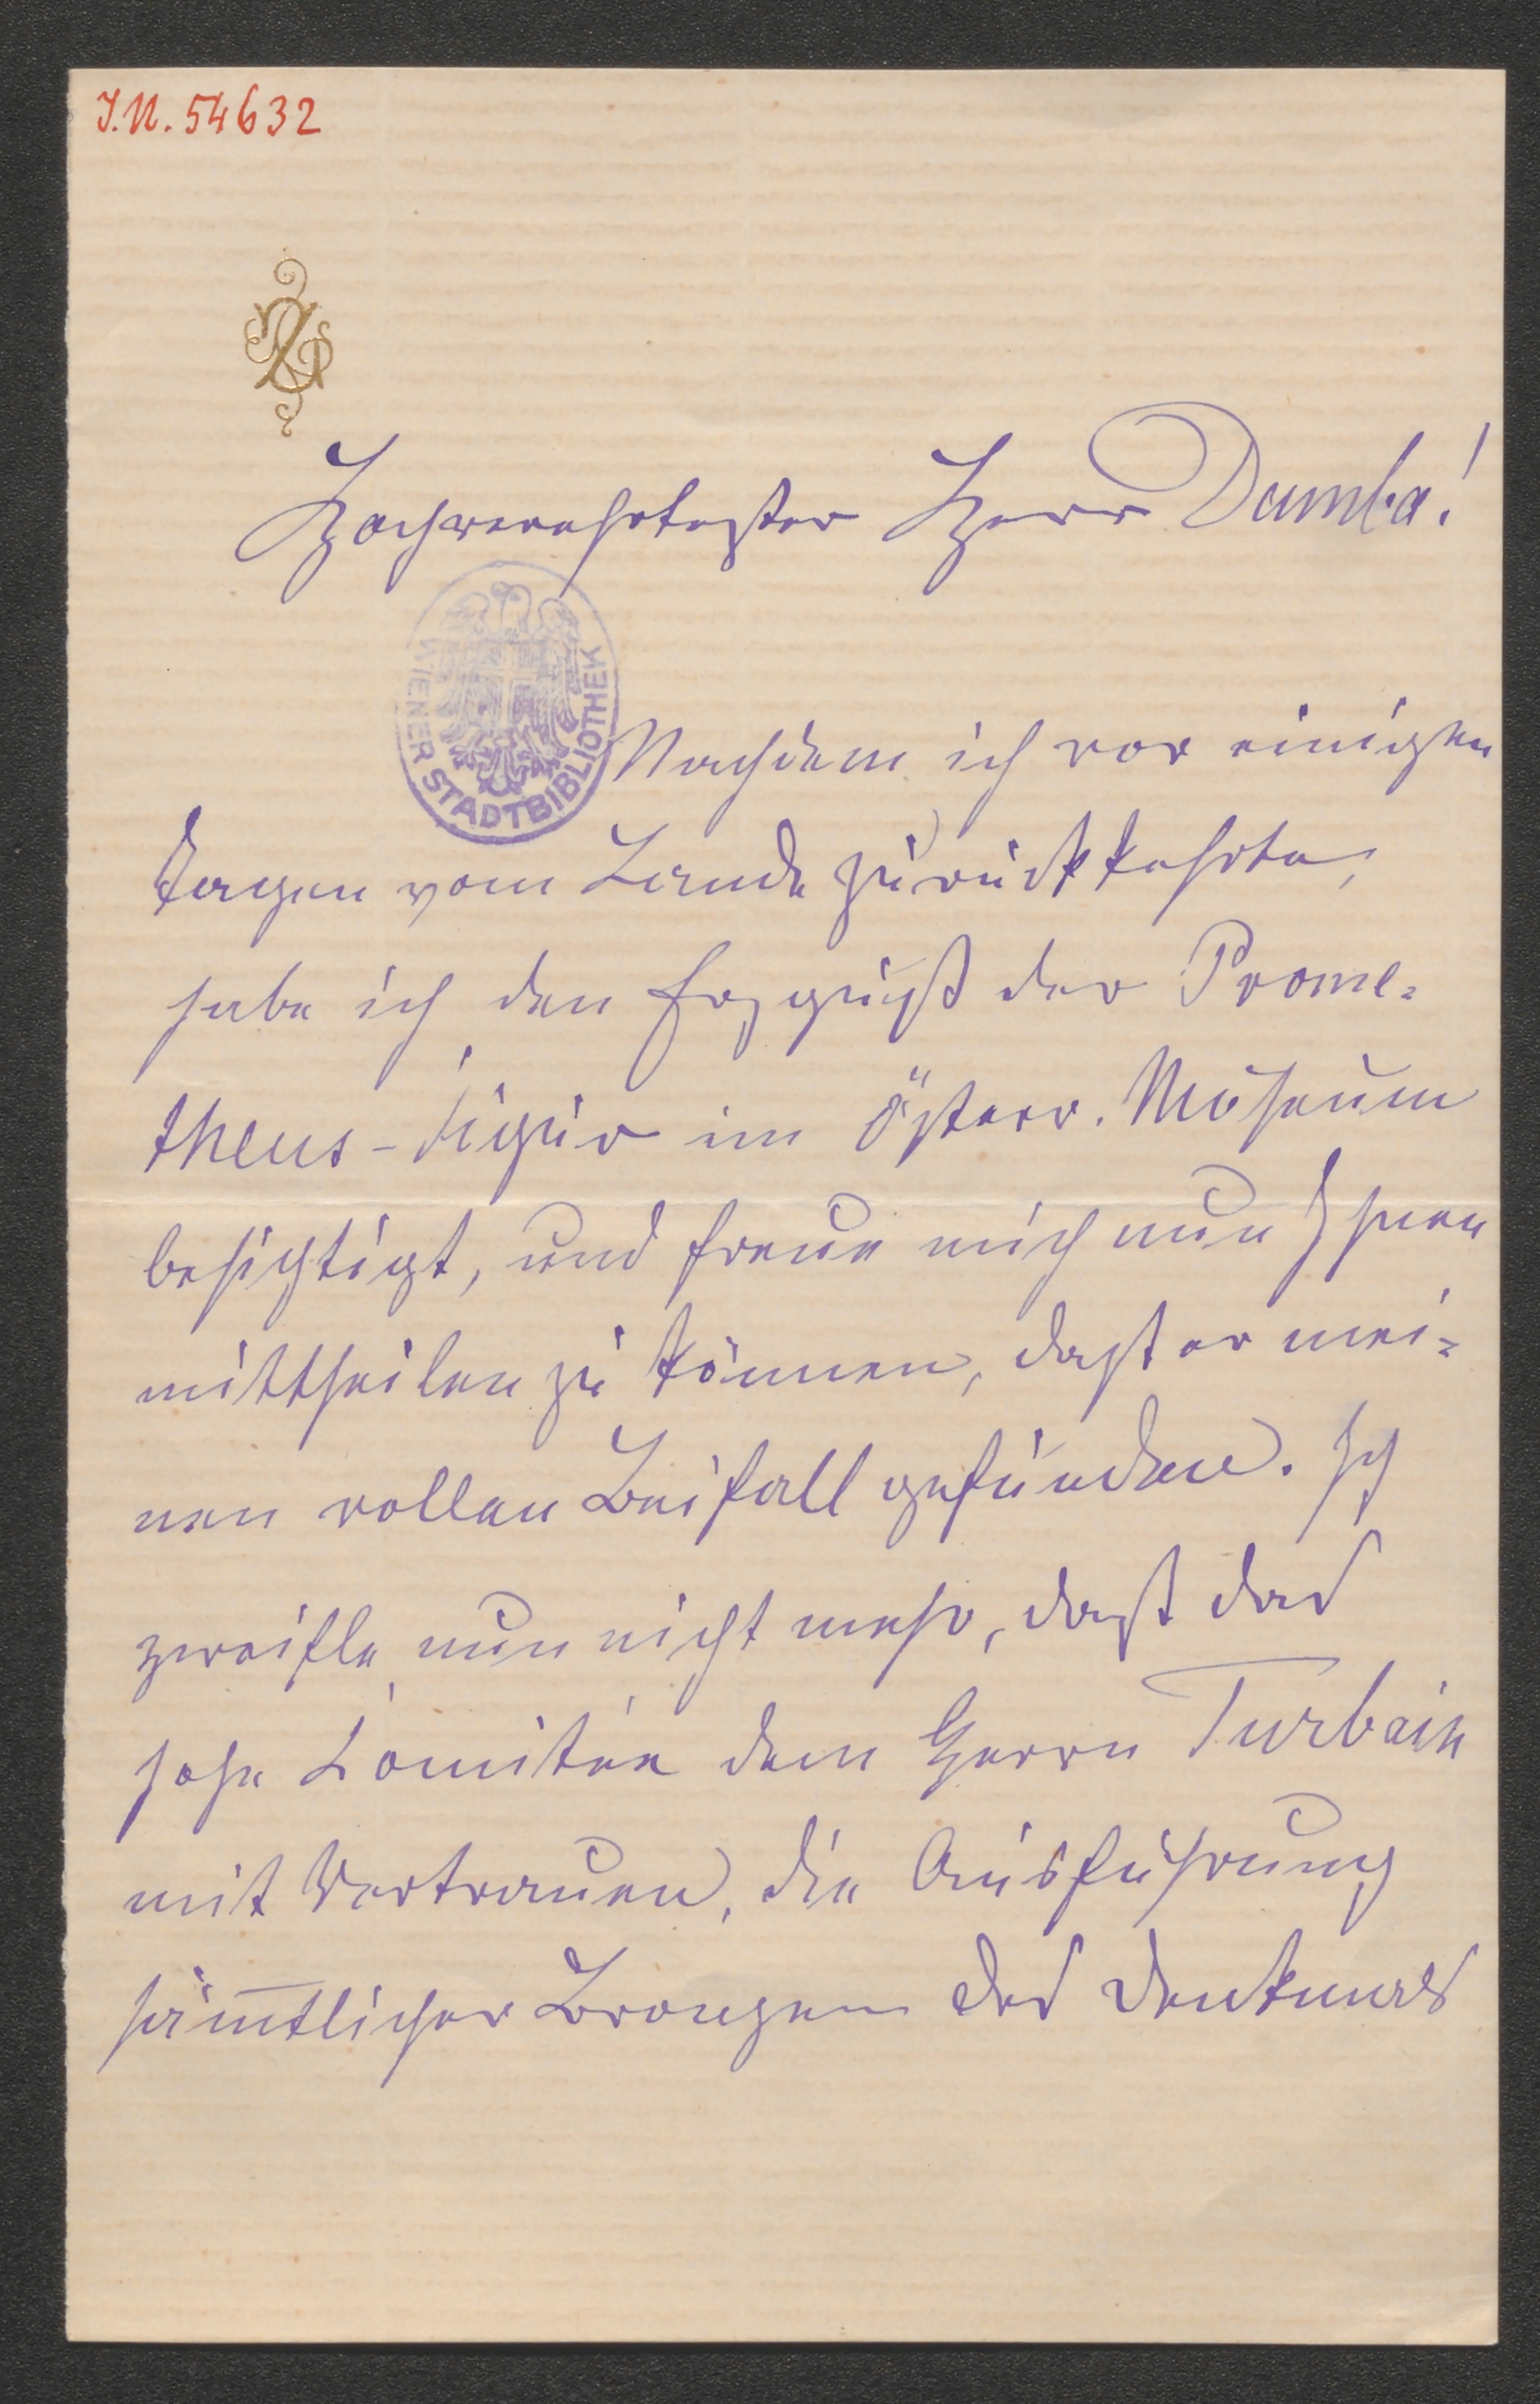 I.N. 54632
Hochverehrtester Herr Dumba!
WIENER STADTBIBLIOTHEK
Nachdem ich vor einigen
Tagen vom Lande zurückkehrte,
habe ich den Erzguß der Prome-
theus-Figur im österr. Museum
besichtigt, und freue mich nun Ihnen
mittheilen zu können, daß er mei-
nen vollen Beifall gefunden. Ich
zweifle nun nicht mehr, daß das
hohe Comitée dem Herrn Turbain
mit Vertrauen, die Ausführung
säm̅tlicher Bronzen des Denkmals